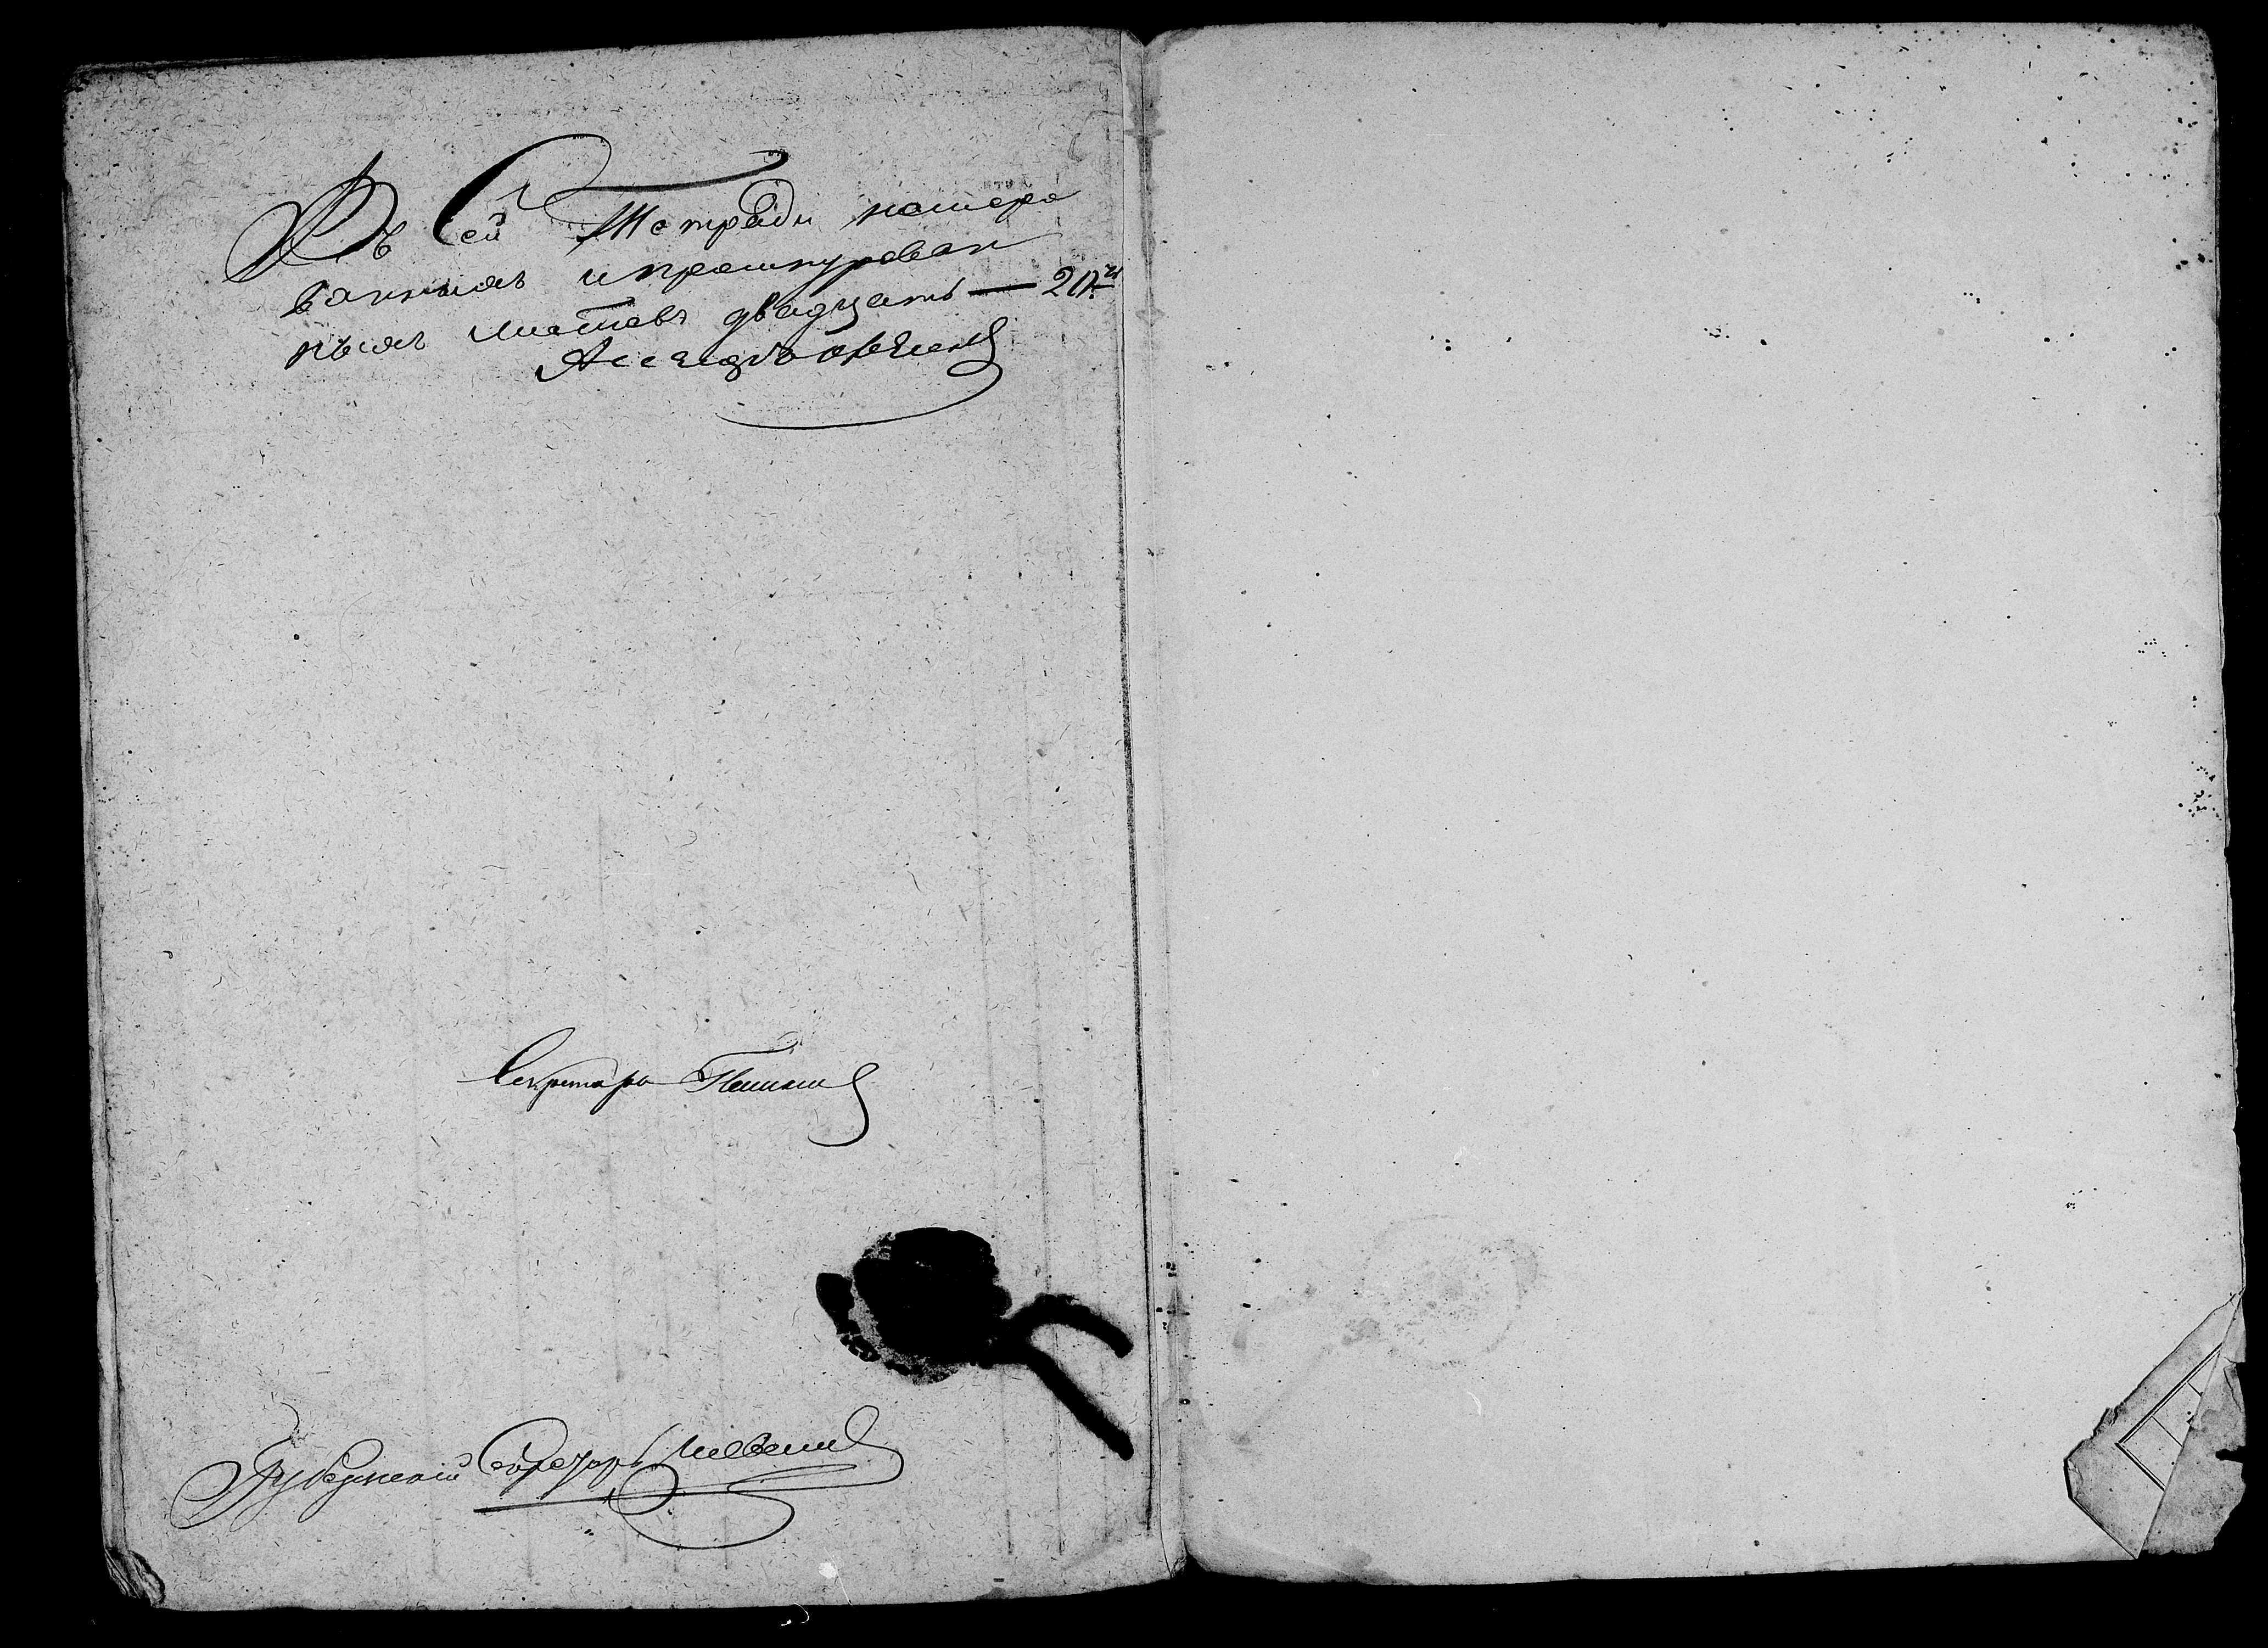 Въ Сей Тетради номеро
ванныхъ и прошнурован
ныхъ листовъ двадцать — 20ть
Секретарь
Губернскій Секретарь